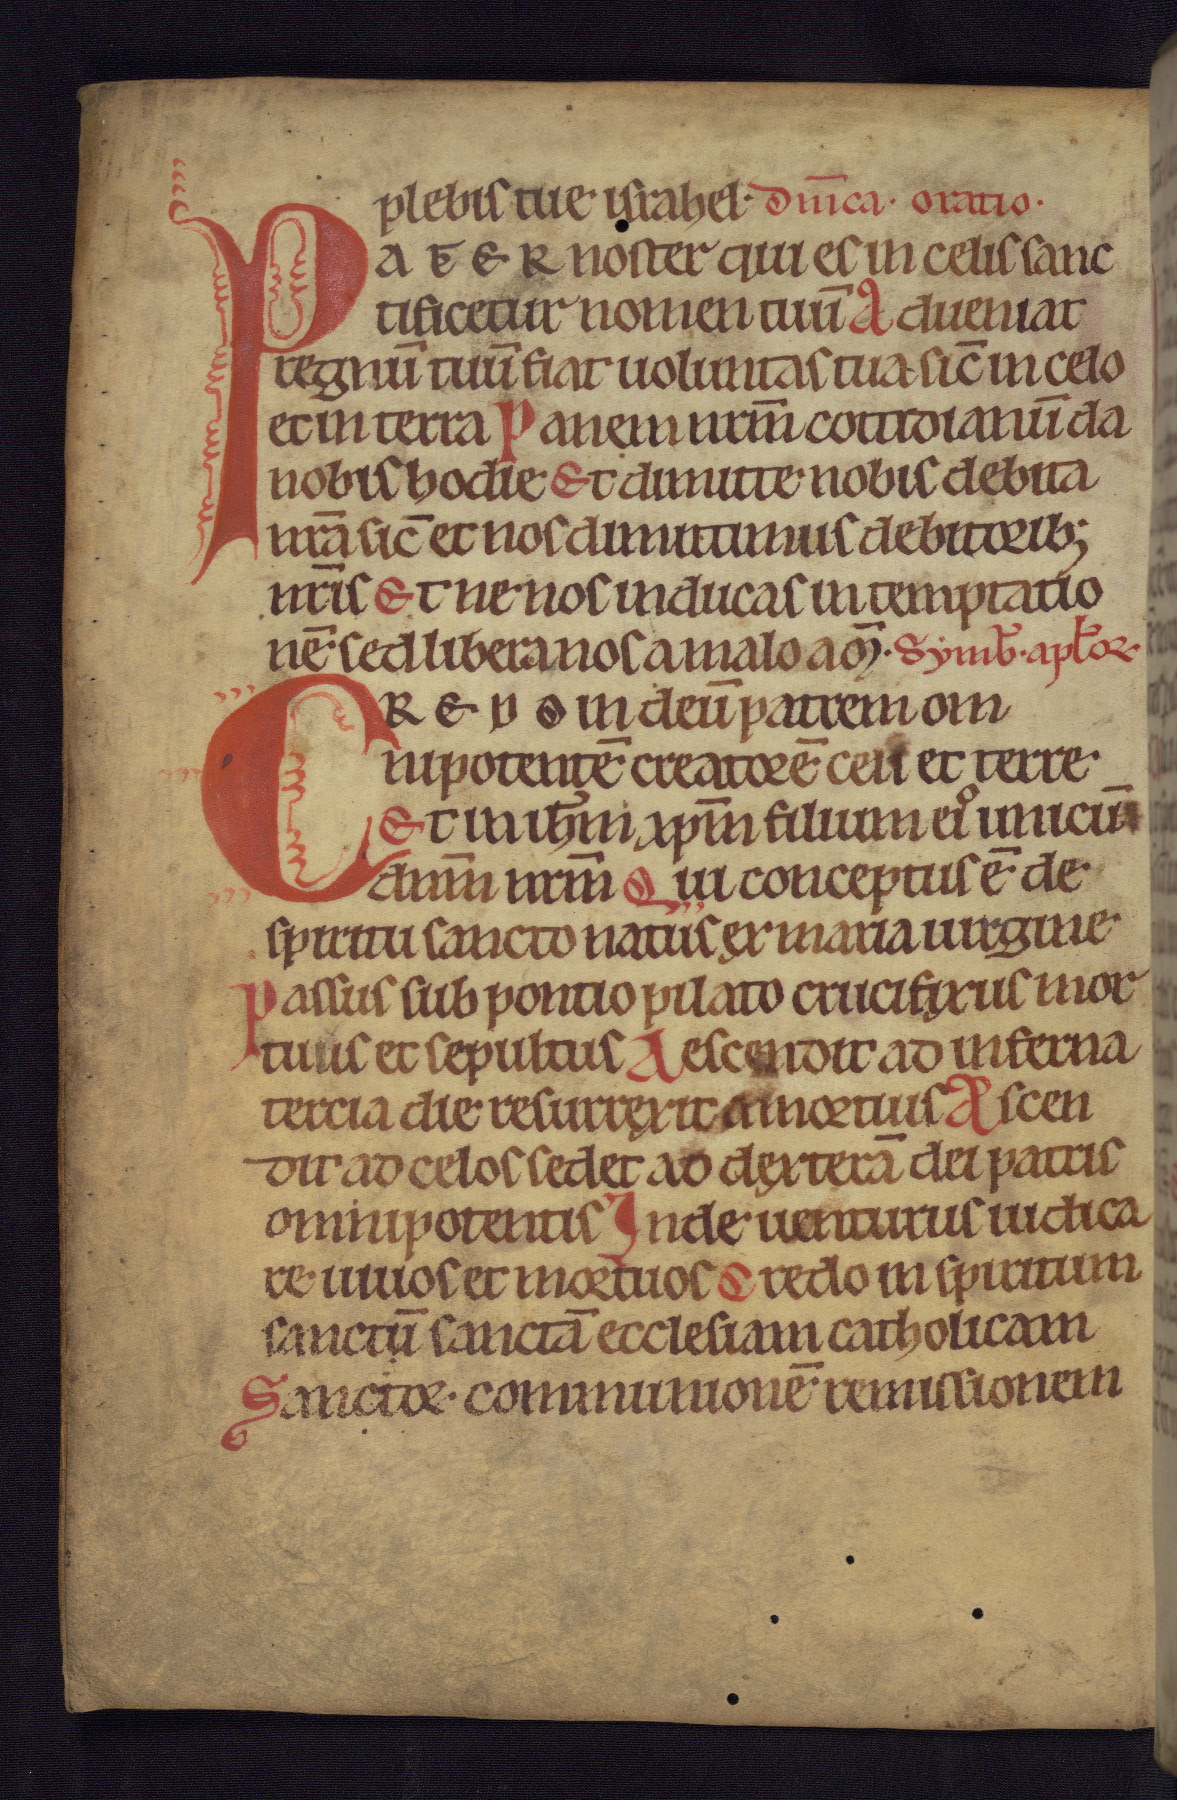 plebis tue israhel· dn̄ica· oratio·
PATER noster qui es in celis sanc
tificetur nomen tuū Adueniat
regnū tuū fiat uoluntas tua sic̄ in celo
et in terra Panem nrm̄ cottidianū da
nobis hodie Et dimitte nobis debita
nrā sic̄ et nos dimittimus debitorib;
nrīs Et ne nos inducas in temptatio
nē sed libera nos a malo am̄· Symb̄· apl̄oꝝ·
CREDO in deū patrem om
nipotentē creatorē celi et terre
Et in ih̄m xp̄m filium eiꝰ unicū
dnm̄ nrm̄ Qui conceptus ē de
spiritu sancto natus ex maria uirgine
Passus sub pontio pilato crucifixus mor
tuus et sepultus Descendit ad inferna
tercia die resurrexit a mortuis Ascen
dit ad celos sedet ad dexterā dei patris
omnipotentis Inde uenturus iudica
re uiuos et mortuos Credo in spiritum
sanctū sanctā ecclesiam catholicam
Sanctoꝝ communionē remissionem